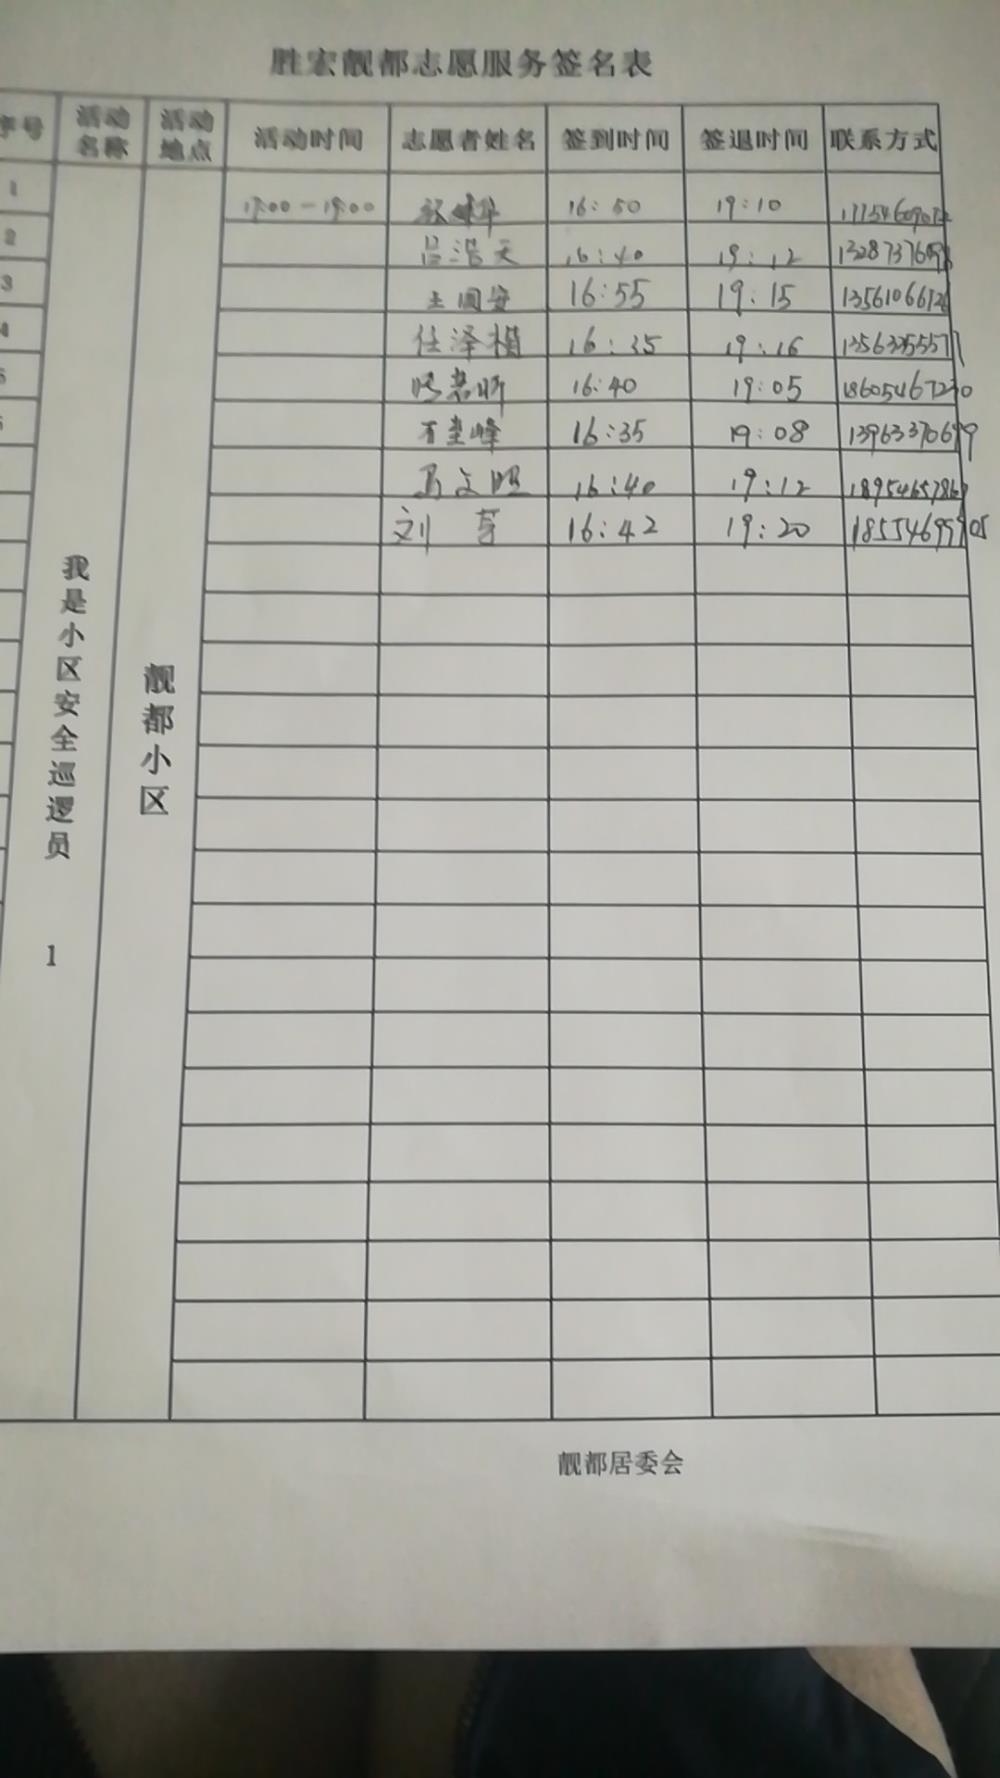 胜宏靓都志愿服务签名表
序号 活动名称 活动地点 活动时间 志愿者姓名 签到时间 签退时间 联系方式
1 17:00-19:00 16:50 19:10
2 吕浩天 16:40 19:12
3 王国安 16:55 19:15
4 任泽楷 16:35 19:16
5 16:40 19:05 18605467230
16:35 19:08
马文明 16:40 19:12
刘芳 16:42 19:20 18554699905
我是小区安全巡逻员 1
靓都小区
靓都居委会